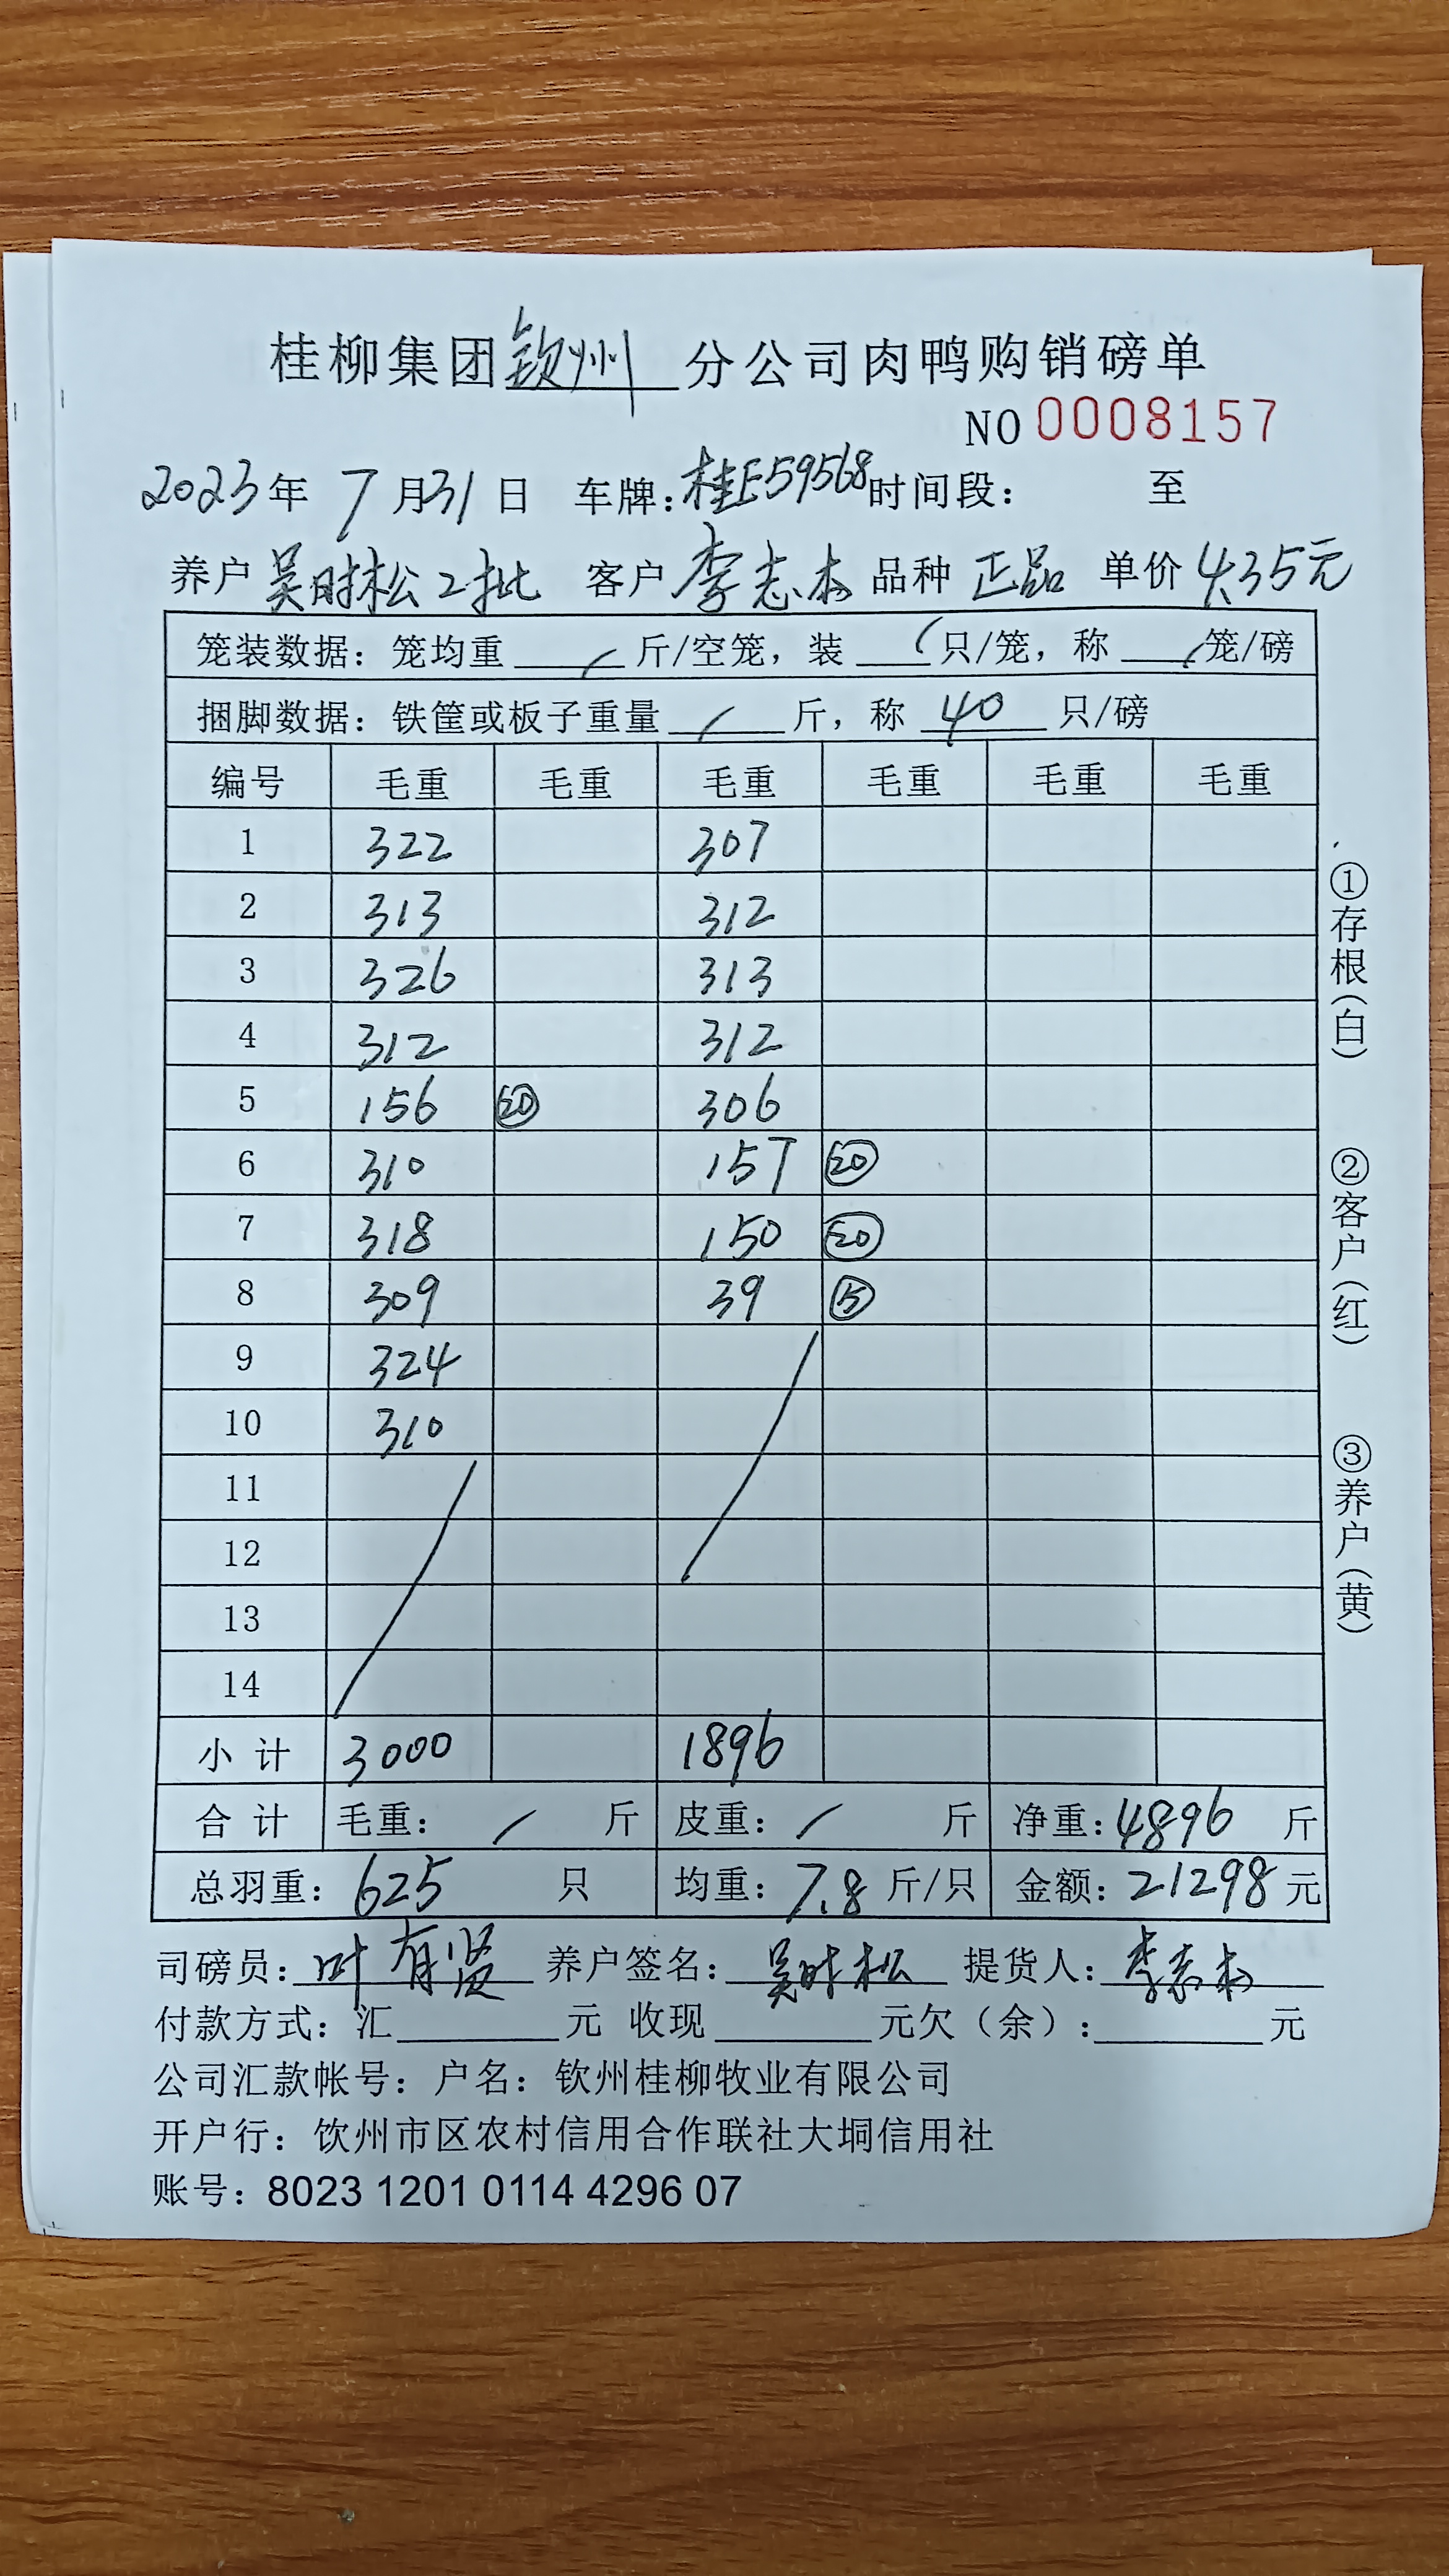 桂柳集团钦州分公司肉鸭购销磅单
NO 0008157
2023年7月31日 车牌:桂E59568时间段: 至
养户 吴时松2批 客户 李志杰 品种 正品 单价 4.35元
笼装数据: 笼均重 / 斤/空笼, 装 / 只/笼, 称 / 笼/磅
捆脚数据: 铁筐或板子重量 / 斤, 称 40 只/磅
编号 毛重 毛重 毛重 毛重 毛重 毛重
1 322 307
2 313 312
3 326 313
4 312 312
5 156 ⑳ 306
6 310 157 ⑳
7 318 150 ⑳
8 309 39 ⑤
9 324
10 310
11
12
13
14
小计 3000 1896
合计 毛重: / 斤 皮重: / 斤 净重: 4896 斤
总羽重: 625 只 均重: 7.8 斤/只 金额: 21298 元
司磅员: 叶有贤 养户签名: 吴时松 提货人: 李志杰
付款方式: 汇 元 收现 元欠(余): 元
公司汇款帐号: 户名: 钦州桂柳牧业有限公司
开户行: 饮州市区农村信用合作联社大垌信用社
账号: 8023 1201 0114 4296 07
①存根(白)
②客户(红)
③养户(黄)